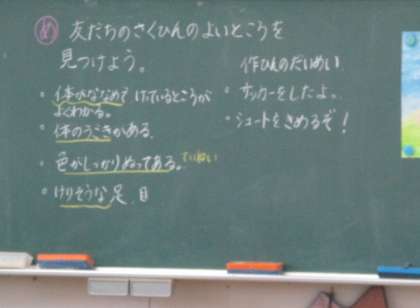 め 友だちのさくひんのよいところを
見つけよう。
・体がななめで けっているところが
よくわかる。
・体のうごきがある。
・色がしっかりぬってある。ていねい
・けりそうな足、目
作ひんのだいめい
・サッカーをしたよ。
・シュートをきめるぞ！